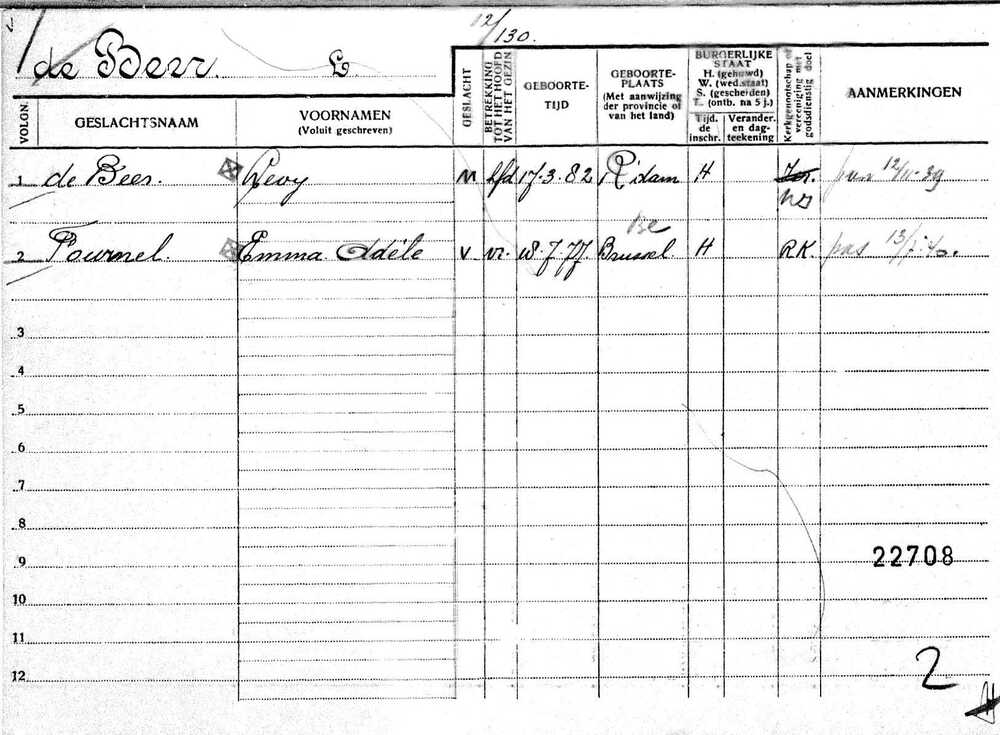 12/130.
de Beer. L.
VOLGN.
GESLACHTSNAAM
VOORNAMEN
(Voluit geschreven)
GESLACHT
BETREKKING TOT HET HOOFD VAN HET GEZIN
GEBOORTE-
TIJD
GEBOORTE-
PLAATS
(Met aanwijzing
der provincie of
van het land)
BURGERLIJKE
STAAT
H. (gehuwd)
W. (wed.staat)
S. (gescheiden)
T. (ontb. na 5 j.)
Tijd.
de
inschr.
Verander.
en dag-
teekening
Kerkgenootschap of vereeniging met godsdienstig doel
AANMERKINGEN
1 de Beer. Levy M hfd 17.3.82 R'dam H Isr. 12/11-39
2 Fournel. Emma Adèle V vr. 18.7.77. Brussel H R.K. pas 13/5.40.
Be
3
4
5
6
7
8
9 22708
10
11
12 2